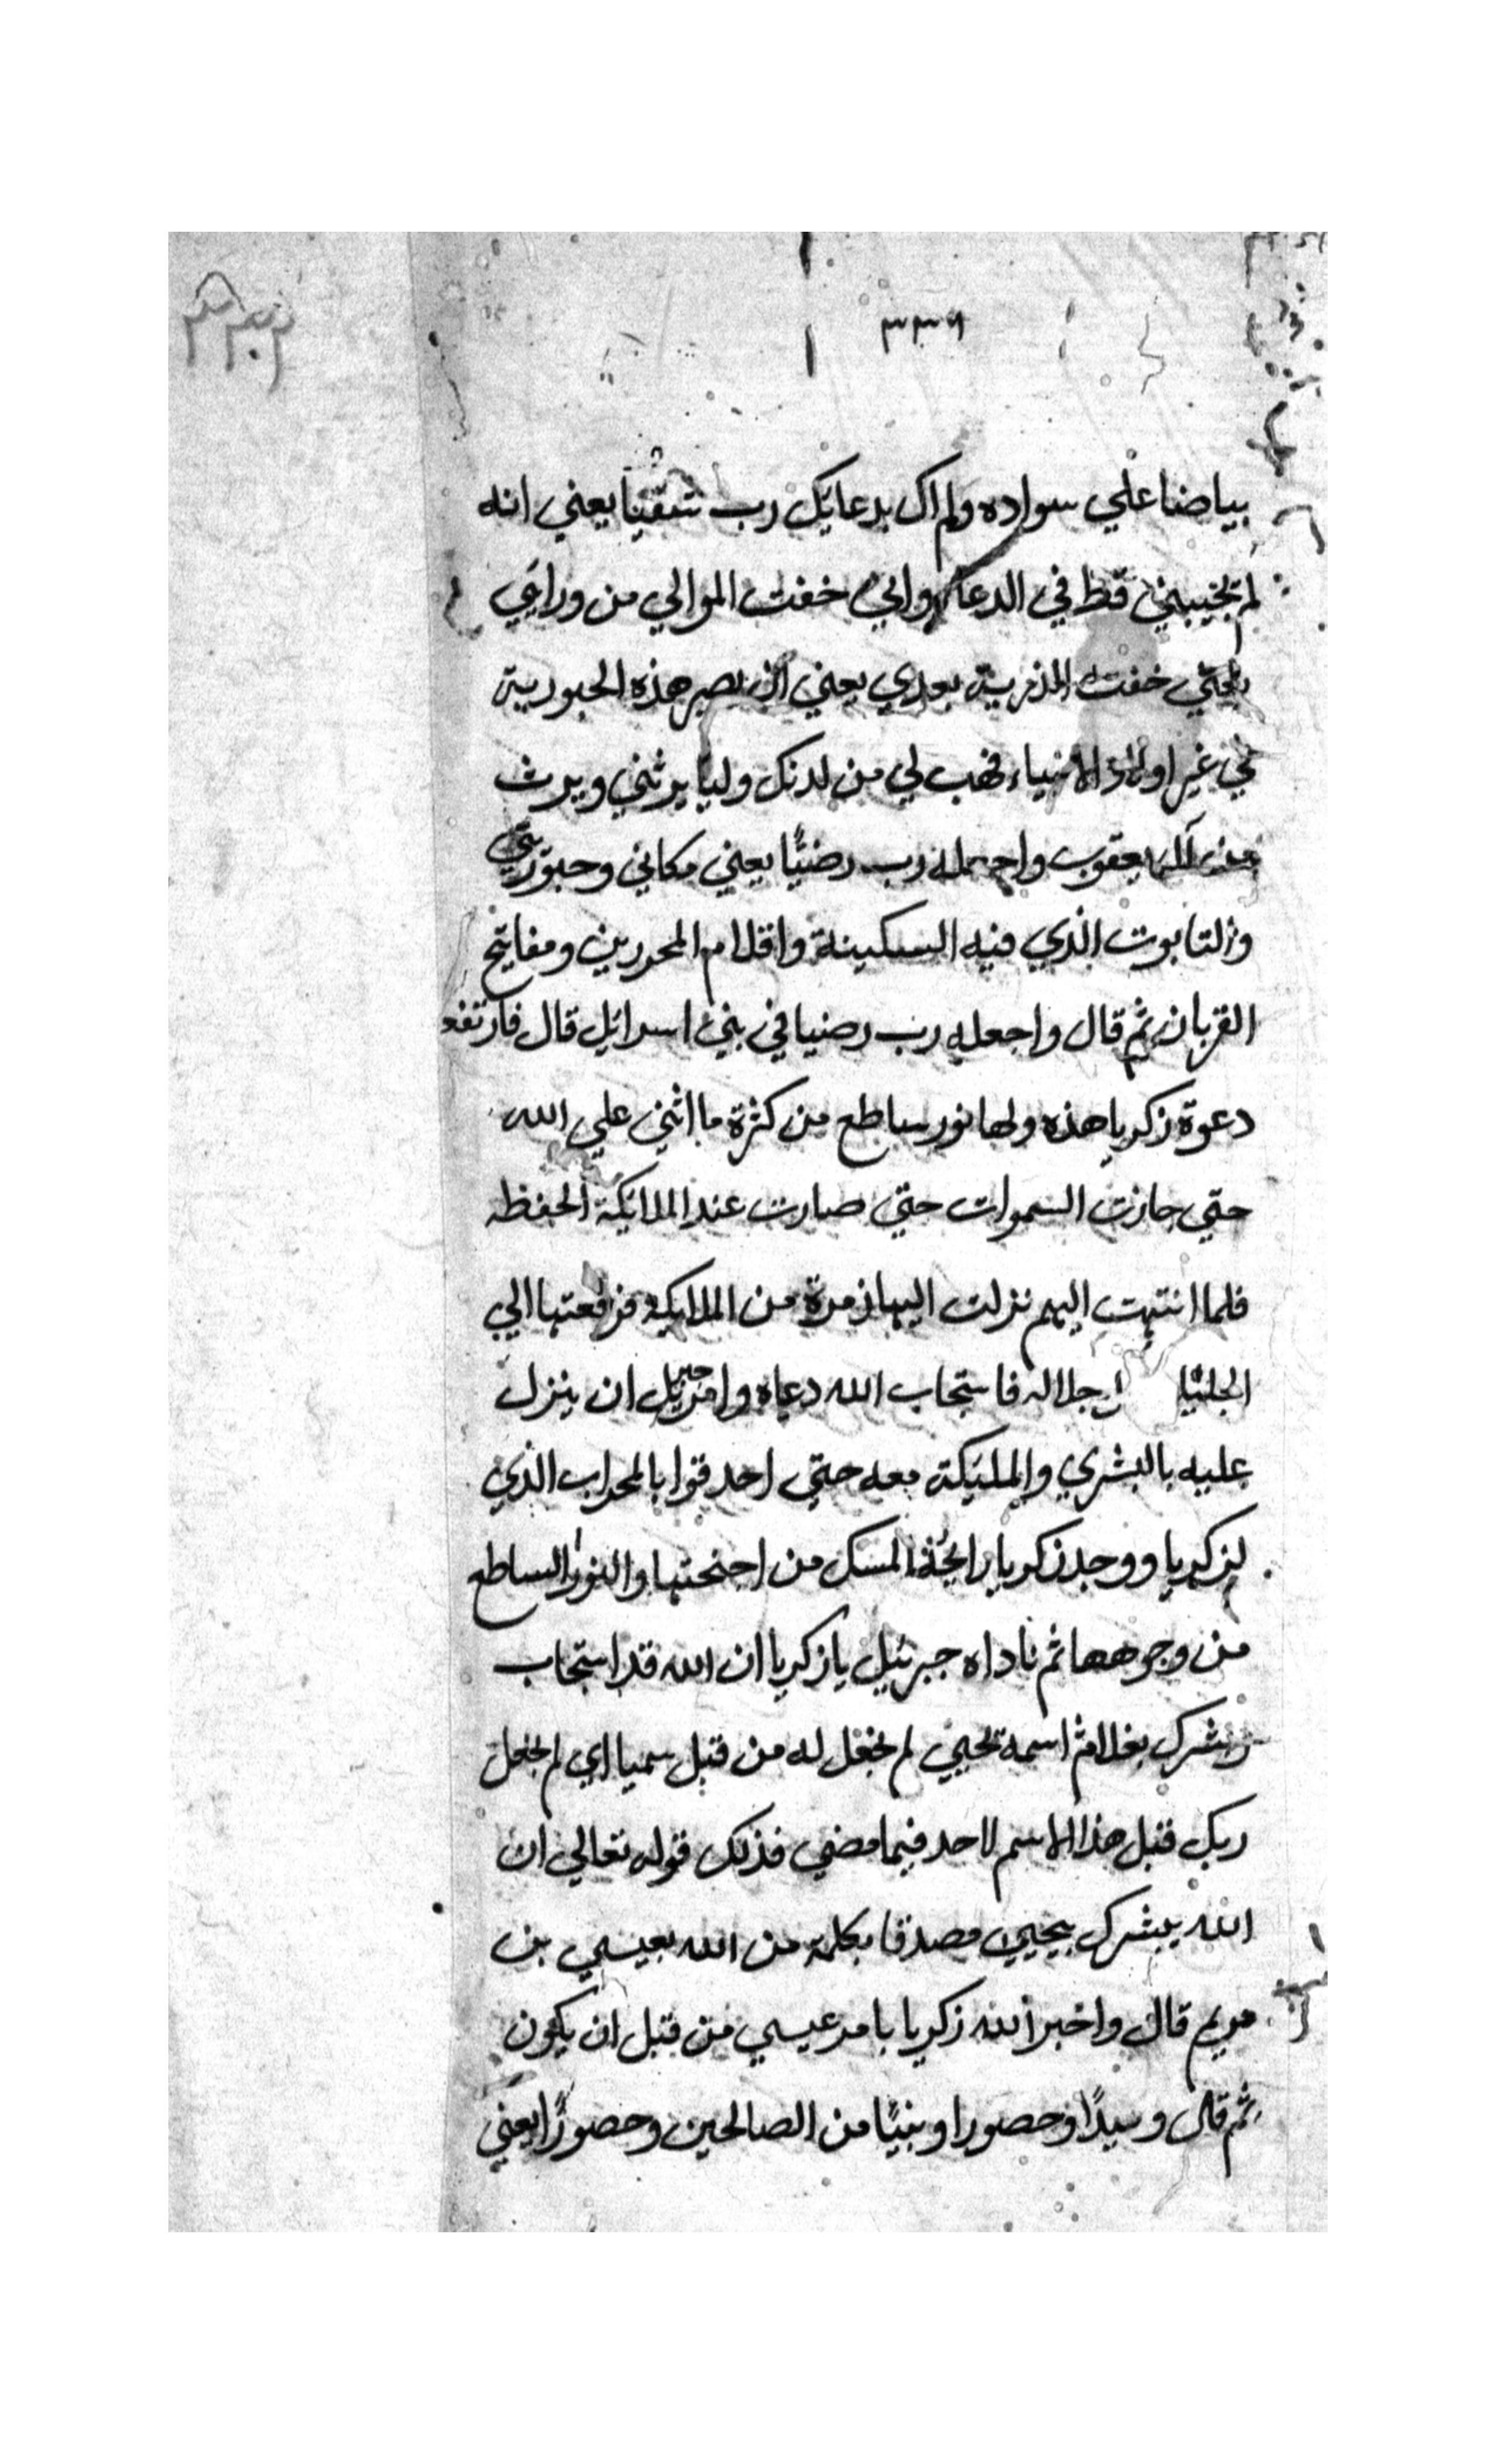 ٣٣٦
بياضا علي سواده ولم اك بدعايك رب شقيا يعني انه
لم تخيبني قط في الدعا واني خفت الموالي من ورائي
خفت الذرية بعدي يعني ان تصير هذه الحبورية
في غير اولاد الانبياء فهب لي من لدنك وليا يرثني ويرث
من آل يعقوب واجعله رب رضيًا يعني مكاني وحبورتي
والتابوت الذي فيه السكينة واقلام المحررين ومفاتيح
القربان ثم قال واجعله رب رضيا في بني اسرائيل قال فارتفع
دعوة زكريا هذه ولها نور ساطع من كثرة ما اثني علي الله
حتي جازت السموات حتي صارت عند الملائكة الحفظه
فلما انتهت اليهم نزلت اليها زمرة من الملايكة فرفعتها الي
فاستجاب الله دعاه وامر جبريل ان ينزل
عليه بالبشري والمليكة معه حتي احدقوا بالمحراب الذي
لزكريا ووجد زكريا رائحة المسك من اجنحتها والنور الساطع
من وجوهها ثم ناداه جبرئيل يا زكريا ان الله قد استجاب
وبشرك بغلام اسمه يحيي لم نجعل له من قبل سميا اي لم يجعل
ربك قبل هذا الاسم لاحد فيما مضي فذلك قوله تعالي ان
الله يبشرك بيحيي مصدقا بكلمة من الله بعيسي بن
مريم قال واخبر الله زكريا بامر عيسي من قبل ان يكون
ثم قال وسيدًا وحصورا ونبيًا من الصالحين وحصورًا يعني